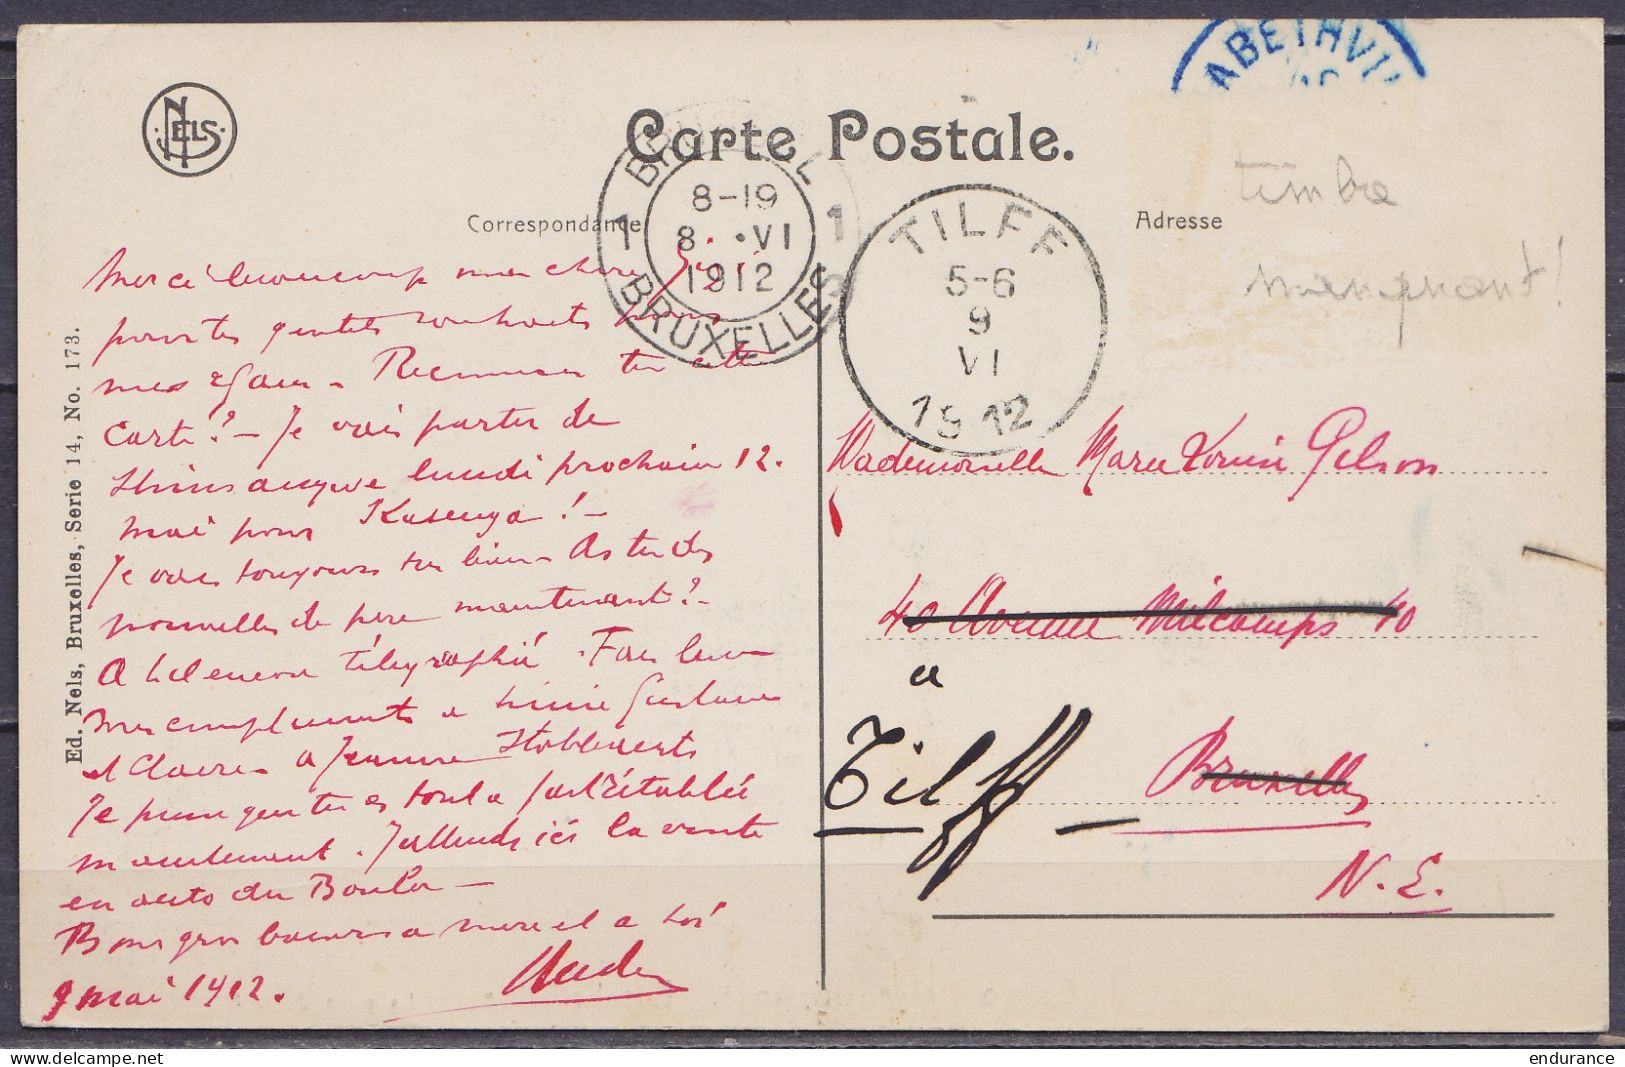 NELS
ABETHVI
Carte Postale.
BRUXEL
8-19
1 8 • VI 1
1912
BRUXELLES
TILFF
5-6
9
VI
1912
timbre
manquant !
Correspondance
Adresse
Merci beaucoup ma chère
pour tes gentils souhaits
mes Reconnais tu cette
Carte ? - Je vais partir de
lundi prochain 12.
mai pour Kasenga ! -
Je vais toujours très bien. As tu des
nouvelles de père maintenant ? -
A t-il encore télégraphié. Fais bien
mes compliments à Gustave
et Claire à Jeanne
Je pense que tu es tout à fait rétablie
maintenant. J'attends ici la vente
en auto du Boula -
Bons gros baisers à mère et à toi
9 mai 1912.
Mademoiselle Marie Louise Gilson
40 Avenue Milcamps 40
a
Tilff
Bruxelles
N. E.
Ed. Nels, Bruxelles, Serie 14, No. 173.
endurance